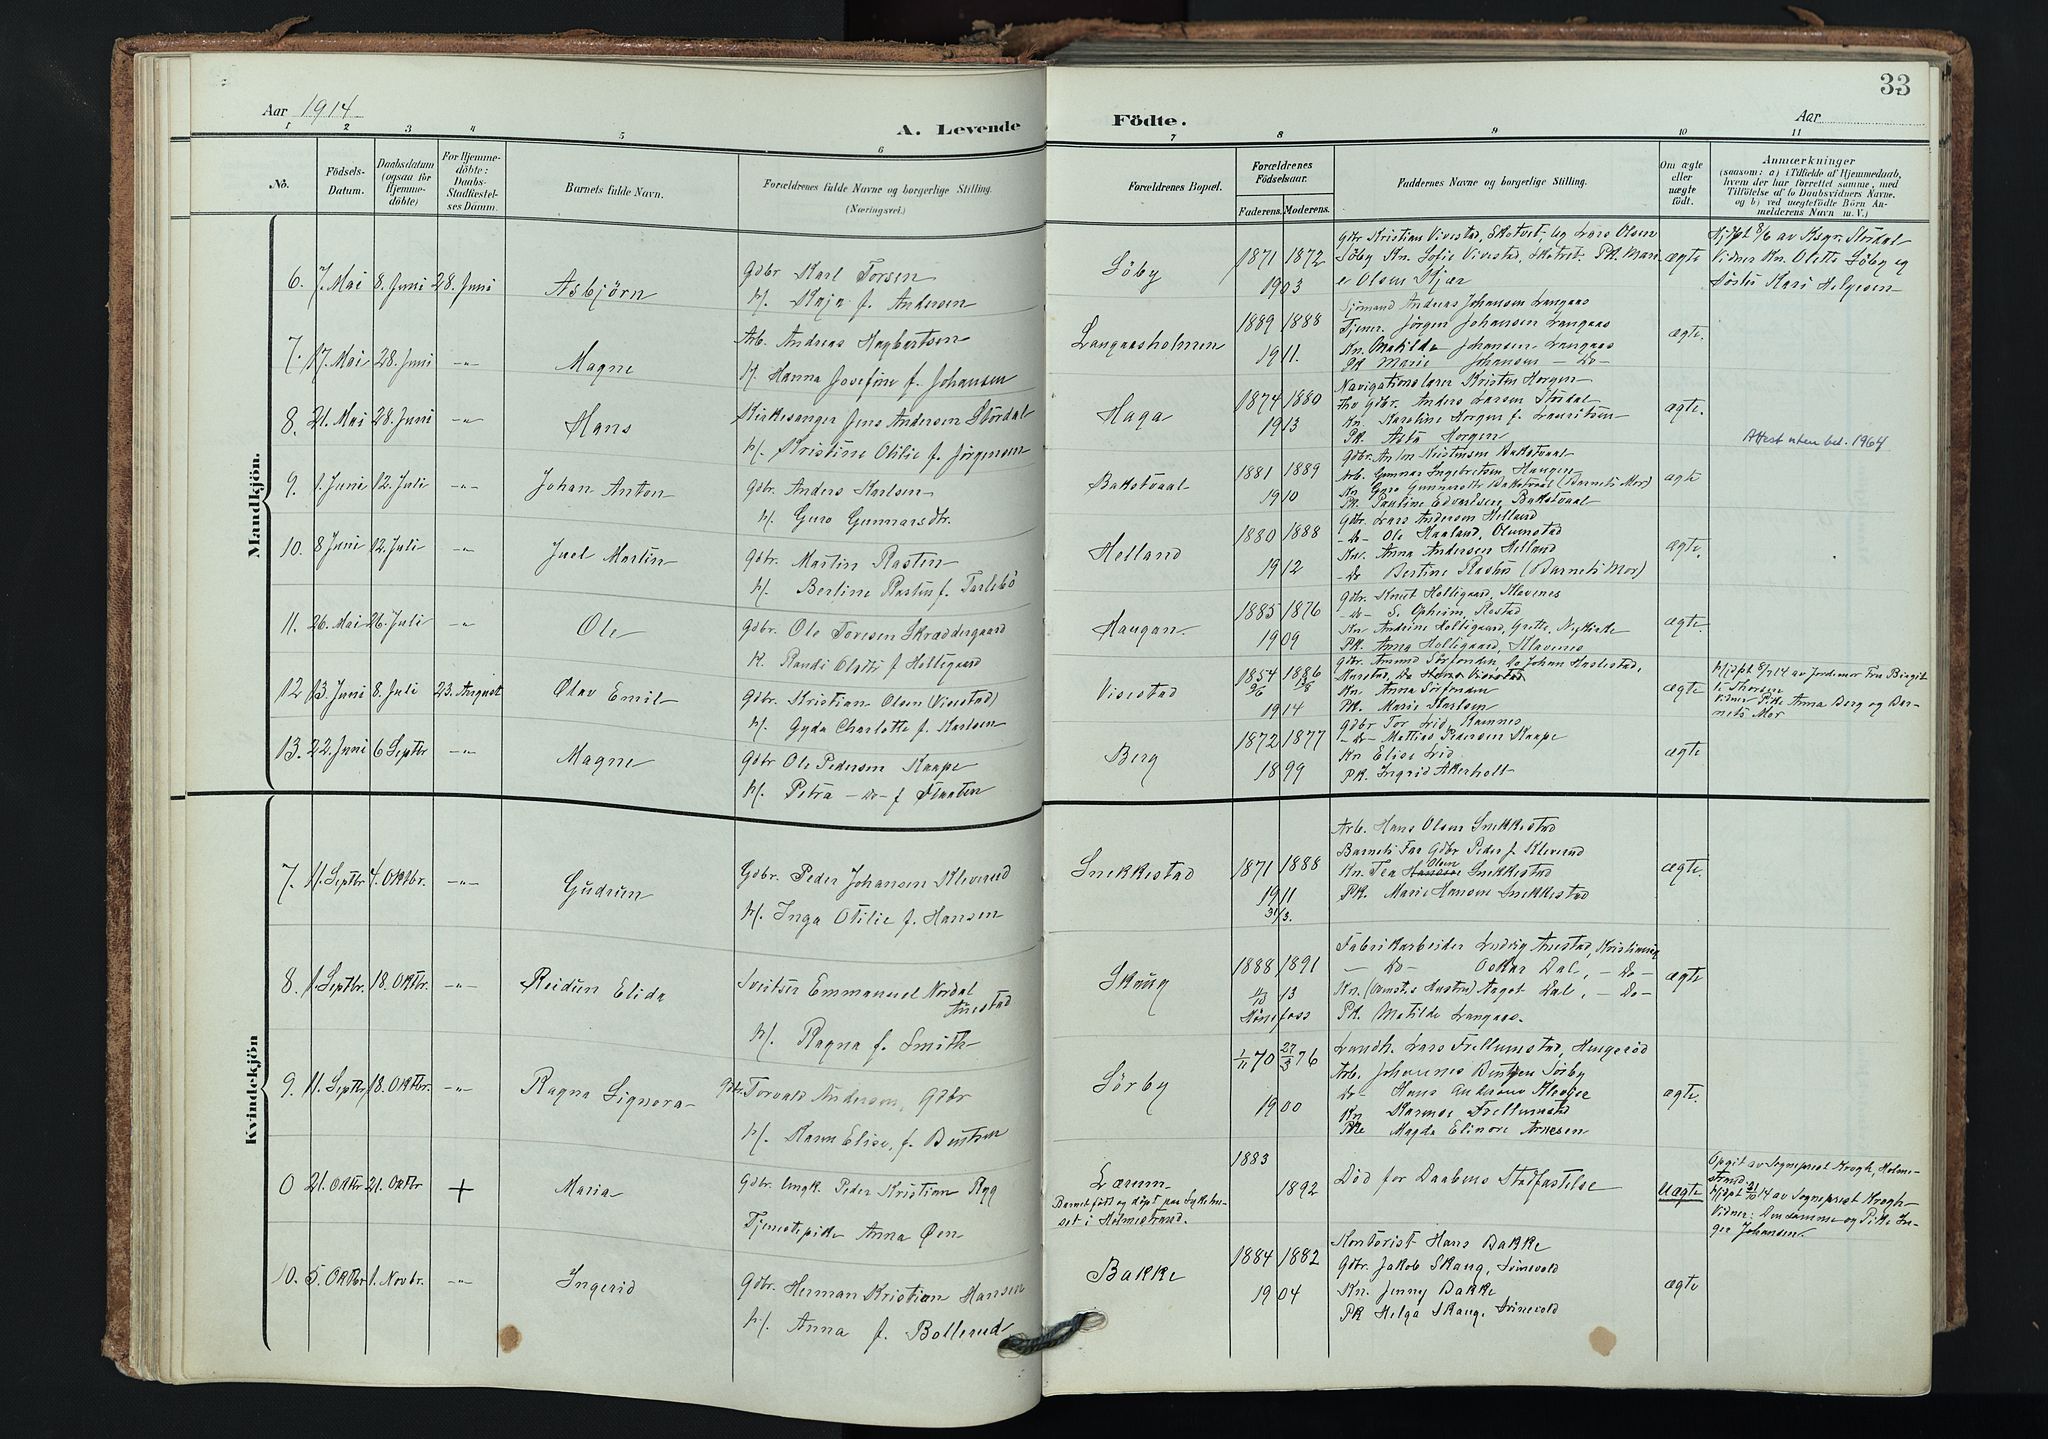 33
Aar 1914
A. Levende Födte.
Aar
1 2 3 4 5 6 7 8 9 10 11
No.
Födsels-Datum.
Daabsdatum (ogsaa for Hjemmedöbte)
For Hjemmedöbte: Daabs-Stadfæstelses Datum.
Barnets fulde Navn.
Forældrenes fulde Navne og borgerlige Stilling.
(Næringsvei.)
Forældrenes Bopæl.
Forældrenes Födselsaar.
Faderens. Moderens.
Faddernes Navne og borgerlige Stilling.
Om ægte eller uægte födt.
Anmærkninger
(saasom: a) i Tilfælde af Hjemmedaab,
hvem der har forrettet samme, med
Tilföielse af to Daabsvidners Navne,
og b) ved uægtefödte Börn An-
melderens Navn m. V.)
Mandkjön.
6. 7. Mai 8. Juni 28. Juni Asbjörn
Gdbr Karl Torsen
H. Kaja f. Andersen
Söby 1871 1872
1903
Gdbr Kristian Vivestad, Skotvet, og Lars Olsen
Söby Kn. Sofie Vivestad, Skotvet. Pk. Mari
e Olsen Kjær
ægte
Hjdpt 8/6 av Ksgr. Stördal
Vidner Kn. Olette Söby og
Søster Kari Helgesen
7. 17. Mai 28. Juni -"- Magne
Arb. Andreas Hagbartsen
H. Hanna Josefine f. Johansen
Langaasholmen 1889 1888
1911.
Sjømand Andreas Johansen Langaas
Tjener. Jørgen Johansen Langaas
Kn. Matilde Johansen Langaas
Pk Marie Johansen - Do -
ægte.
8. 21. Mai 28. Juni -"- Hans
Kirkesanger Jens Andersen Stördal
H. Kristine Otilie f. Jörgensen
Haga 1874 1880
1913
Navigationslærer Kristen Horgen
Fhv Gdbr. Anders Larsen Stördal
Kn. Karoline Horgen f. Lauritsen
Pk. Asta Horgen
ægte.
Attest uten bet. 1964
9. 1. Juni 12. Juli -"- Johan Anton
Gdbr. Anders Karlsen
H. Guro Gunnarsdtr.
Bakstvaal 1881 1889
1910
Gdbr. Anton Kristensen Bakstvaal
Arb. Gunnar Ingebretsen Haugen
Kn Guro Gunnarsdtr Bakstvaal (Barnets Mor)
Pk. Pauline Edvardsen Bakstvaal
ægte
10. 8 Juni 12. Juli -"- Juel Martin
Gdbr. Martin Rasten
H. Bertine Rasten f. Tarlebö
Helland 1880 1888
1912
Gdbr. Lars Andersen Helland
-Do- Ole Haaland, Olumstad
Kn. Anna Andersen Helland
-Do Bertine Rasten (Barnets Mor)
ægte.
11. 26. Mai 26. Juli -"- Ole
Gdbr. Ole Toresen Skræddergaard
H. Randi Olette f. Holtegaard
Haugan. 1885 1876
1909
Gdbr. Knut Holtegaard, Klavenes
-Do- S. Opheim, Rostad
Kn Andrine Holtegaard, Grette, Nykirke
Pk. Anna Holtegaard, Klavenes
ægte.
12 13. Juni 8. Juli 23. August Olav Emil
Gdbr. Kristian Olsen (Vivestad)
H. Gyda Charlotte f. Karlsen
Vivestad 1854 1886
1914
Gdbr. Amund Sörfonden, Do Johan Haslestad,
Kn. Anna Sörfonden
Pk. Marie Karlsen
ægte
Hjdpt 8/7 14 av Jordemor Fru Birgit
te Thorsen
Vidner Pike Anna Berg og Bar-
nets Mor
13. 22. Juni 6 Septbr -"- Magne
Gdbr Ole Pedersen Kaape
H. Petra -Do- f Flaaten
Berg 1872 1877
1899
Gdbr Tor Lid, Ramnes
-Do- Mattias Pedersen Kaape
Kn Elise Lid
Pk. Ingrid Akerholt
ægte
Kvindekjön
7. 11. Septbr 4. Oktbr. -"- Gudrun
Gdbr. Peder Johansen Kleverud
H. Inga Otilie f. Hansen
Snekkestad 1871 1888
1911
31/3.
Arb. Hans Olsen Snekkestad
Barnets Far Gdbr Peder J. Kleverud
Kn. Tea Olsen Snekkestad
Pk. Marie Hansen Snekkestad
ægte.
8. 1. Septbr. 18. Oktbr. -"- Reidun Elida
Sveitser Emmanuel Nordal
Auestad
H. Ragna f. Smith
Skaug 1888 1891
13
Hönefoss
Fabrikarbeider Ludvig Auestad, Kristiania
- Do - Oskar Dal, - Do -
Kn. Aagot Dal, - Do -
Pk. Matilde Langaas.
ægte
9. 11. Septbr. 18. Oktbr. -"- Ragna Signora
Gdbr. Torvald Andersen, Gdbr
H. Karen Elise, f. Buntsen
Sörby 1/11 70 27/3 76
1900
Landh. Lars Frellumstad, Haugeröd
Arb. Johannes Bentsen Sörby
Do- Hans Andersen Klevjee
Kn Karense Frellumstad
Pke Magda Elinore Arnesen
ægte.
0 21. Oktbr 21. Oktbr + Maria
Gdbr. Ungk. Peder Kristian Rygg
Tjenestepike Anna Øen
Lærum
Barnet födt og döpt paa Sykehu-
set i Holmestrand.
1883
1892
Død for Daabens Stadfæstelse
Uægte
Opgit av Sogneprest Krogh, Holme-
strand.
Hjdpt 21/10 14 av Sogneprest Krogh
Vidner: Densamme og Pike In-
ger Johansen.
10. 5. Oktbr 1. Novbr. -"- Ingerid
Gdbr. Herman Kristian Hansen
H. Anna f. Bollerud
Bakke 1884 1882
1904
Kontorist Hans Bakke
Gdbr. Jakob Skaug, Svinevold
Kn. Jenny Bakke
Pk Helga Skaug, Svinevold
ægte